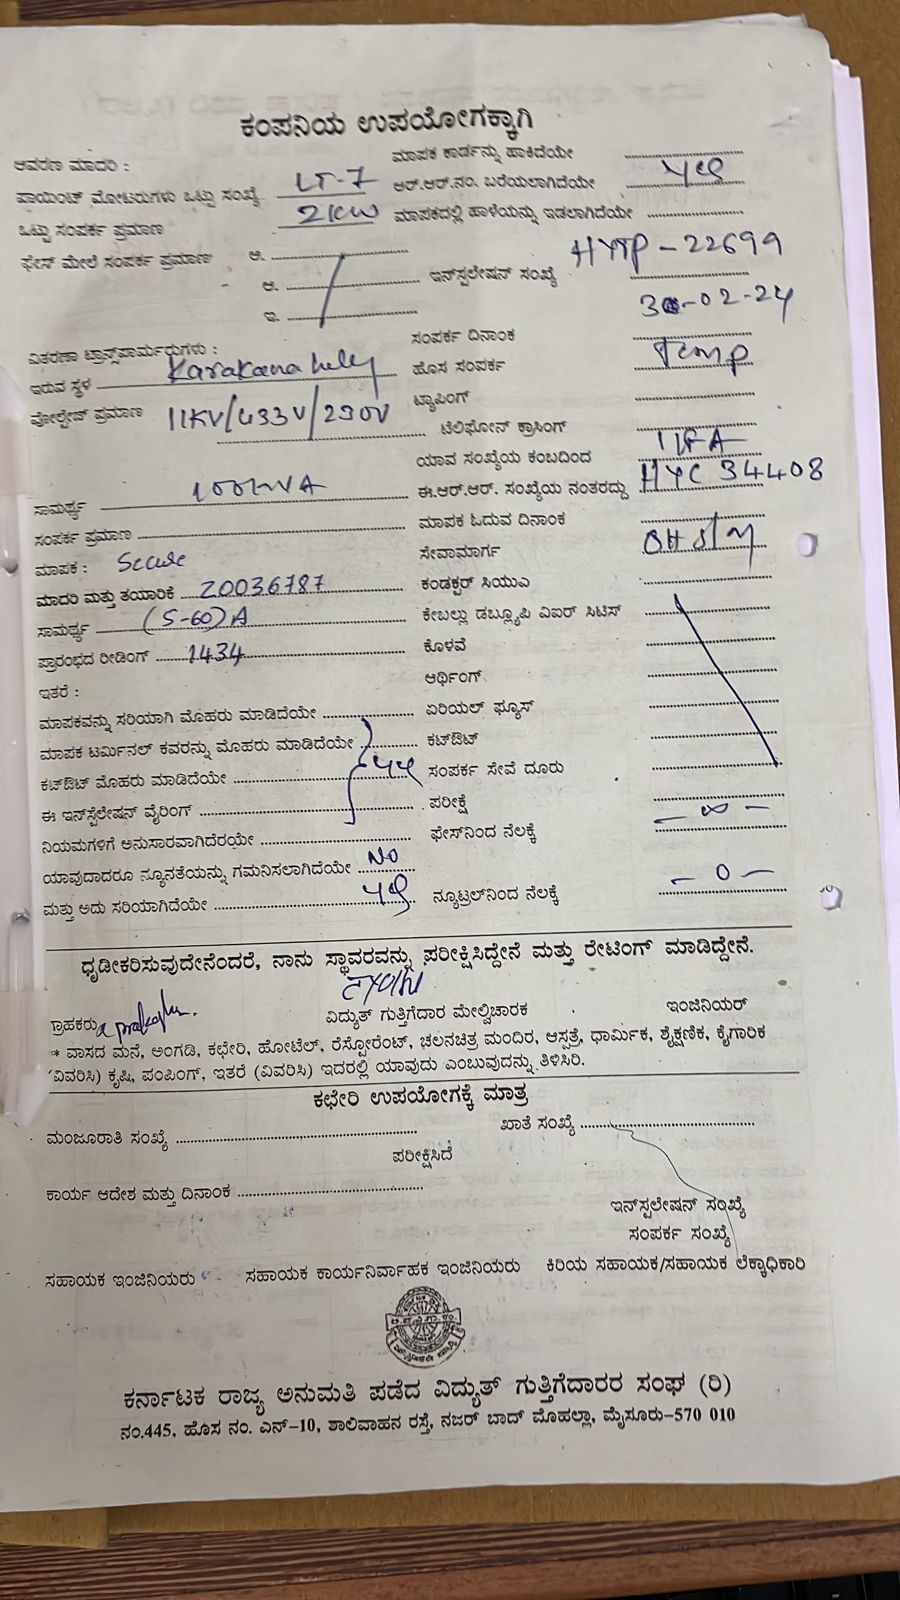 ಕಂಪನಿಯ ಉಪಯೋಗಕ್ಕಾಗಿ
ಆವರಣ ಮಾದರಿ : ಮಾಪಕ ಕಾರ್ಡನ್ನು ಹಾಕಿದೆಯೇ
ಪಾಯಿಂಟ್ ಮೋಟರುಗಳು ಒಟ್ಟು ಸಂಖ್ಯೆ LT-7 ಆರ್.ಆರ್.ನಂ. ಬರೆಯಲಾಗಿದೆಯೇ Yes
ಒಟ್ಟು ಸಂಪರ್ಕ ಪ್ರಮಾಣ 2KW ಮಾಪಕದಲ್ಲಿ ಹಾಳೆಯನ್ನು ಇಡಲಾಗಿದೆಯೇ
ಫೇಸ್ ಮೇಲೆ ಸಂಪರ್ಕ ಪ್ರಮಾಣ ಅ.
ಆ. ಇನ್‌ಸ್ಪಲೇಷನ್ ಸಂಖ್ಯೆ HYTP-22699
ಇ.
ಸಂಪರ್ಕ ದಿನಾಂಕ -02-24
ವಿತರಣಾ ಟ್ರಾನ್ಸ್‌ಪಾರ್ಮರುಗಳು :
ಇರುವ ಸ್ಥಳ ಹೊಸ ಸಂಪರ್ಕ Temp
ವೋಲ್ಟೇಜ್ ಪ್ರಮಾಣ 11KV/433V/230V ಟ್ಯಾಪಿಂಗ್
ಟೆಲಿಫೋನ್ ಕ್ರಾಸಿಂಗ್
ಯಾವ ಸಂಖ್ಯೆಯ ಕಂಬದಿಂದ
ಸಾಮರ್ಥ್ಯ 100KVA ಈ.ಆರ್.ಆರ್. ಸಂಖ್ಯೆಯ ನಂತರದ್ದು HYC 34408
ಸಂಪರ್ಕ ಪ್ರಮಾಣ ಮಾಪಕ ಓದುವ ದಿನಾಂಕ
ಮಾಪಕ : Secure ಸೇವಾಮಾರ್ಗ OH
ಮಾದರಿ ಮತ್ತು ತಯಾರಿಕೆ 20036787 ಕಂಡಕ್ಟರ್ ಸಿಯುಎ
ಸಾಮರ್ಥ್ಯ (5-60)A ಕೇಬಲ್ಲು ಡಬ್ಲ್ಯೂಪಿ ವಿಐಆರ್ ಸಿಟಿಸ್
ಪ್ರಾರಂಭದ ರೀಡಿಂಗ್ 1434 ಕೊಳವೆ
ಇತರೆ : ಆರ್ಥಿಂಗ್
ಮಾಪಕವನ್ನು ಸರಿಯಾಗಿ ಮೊಹರು ಮಾಡಿದೆಯೇ ಏರಿಯಲ್ ಫ್ಯೂಸ್
ಮಾಪಕ ಟರ್ಮಿನಲ್ ಕವರನ್ನು ಮೊಹರು ಮಾಡಿದೆಯೇ ಕಟ್‌ಔಟ್
ಕಟ್‌ಔಟ್ ಮೊಹರು ಮಾಡಿದೆಯೇ ಸಂಪರ್ಕ ಸೇವೆ ದೂರು
ಈ ಇನ್‌ಸ್ಪೆಲೇಷನ್ ವೈರಿಂಗ್ ಪರೀಕ್ಷೆ
ನಿಯಮಗಳಿಗೆ ಅನುಸಾರವಾಗಿದೆರಯೇ ಫೇಸ್‌ನಿಂದ ನೆಲಕ್ಕೆ – ∞ –
ಯಾವುದಾದರೂ ನ್ಯೂನತೆಯನ್ನು ಗಮನಿಸಲಾಗಿದೆಯೇ No
ಮತ್ತು ಅದು ಸರಿಯಾಗಿದೆಯೇ yes ನ್ಯೂಟ್ರಲ್‌ನಿಂದ ನೆಲಕ್ಕೆ – 0 –
ಧೃಡೀಕರಿಸುವುದೇನೆಂದರೆ, ನಾನು ಸ್ಥಾವರವನ್ನು ಪರೀಕ್ಷಿಸಿದ್ದೇನೆ ಮತ್ತು ರೇಟಿಂಗ್ ಮಾಡಿದ್ದೇನೆ.
ಗ್ರಾಹಕರು ವಿದ್ಯುತ್ ಗುತ್ತಿಗೆದಾರ ಮೇಲ್ವಿಚಾರಕ ಇಂಜಿನಿಯರ್
* ವಾಸದ ಮನೆ, ಅಂಗಡಿ, ಕಛೇರಿ, ಹೋಟೆಲ್, ರೆಸ್ಟೋರೆಂಟ್, ಚಲನಚಿತ್ರ ಮಂದಿರ, ಆಸ್ಪತ್ರೆ, ಧಾರ್ಮಿಕ, ಶೈಕ್ಷಣಿಕ, ಕೈಗಾರಿಕ
(ವಿವರಿಸಿ) ಕೃಷಿ, ಪಂಪಿಂಗ್, ಇತರೆ (ವಿವರಿಸಿ) ಇದರಲ್ಲಿ ಯಾವುದು ಎಂಬುವುದನ್ನು ತಿಳಿಸಿರಿ.
ಕಛೇರಿ ಉಪಯೋಗಕ್ಕೆ ಮಾತ್ರ
ಮಂಜೂರಾತಿ ಸಂಖ್ಯೆ ಖಾತೆ ಸಂಖ್ಯೆ
ಪರೀಕ್ಷಿಸಿದೆ
ಕಾರ್ಯ ಆದೇಶ ಮತ್ತು ದಿನಾಂಕ
ಇನ್‌ಸ್ಪಲೇಷನ್ ಸಂಖ್ಯೆ
ಸಂಪರ್ಕ ಸಂಖ್ಯೆ
ಸಹಾಯಕ ಇಂಜಿನಿಯರು ಸಹಾಯಕ ಕಾರ್ಯನಿರ್ವಾಹಕ ಇಂಜಿನಿಯರು ಕಿರಿಯ ಸಹಾಯಕ/ಸಹಾಯಕ ಲೆಕ್ಕಾಧಿಕಾರಿ
ಕರ್ನಾಟಕ ರಾಜ್ಯ ಅನುಮತಿ ಪಡೆದ ವಿದ್ಯುತ್ ಗುತ್ತಿಗೆದಾರರ ಸಂಘ (ರಿ)
ನಂ.445, ಹೊಸ ನಂ. ಎನ್-10, ಶಾಲಿವಾಹನ ರಸ್ತೆ, ನಜರ್ ಬಾದ್ ಮೊಹಲ್ಲಾ, ಮೈಸೂರು-570 010